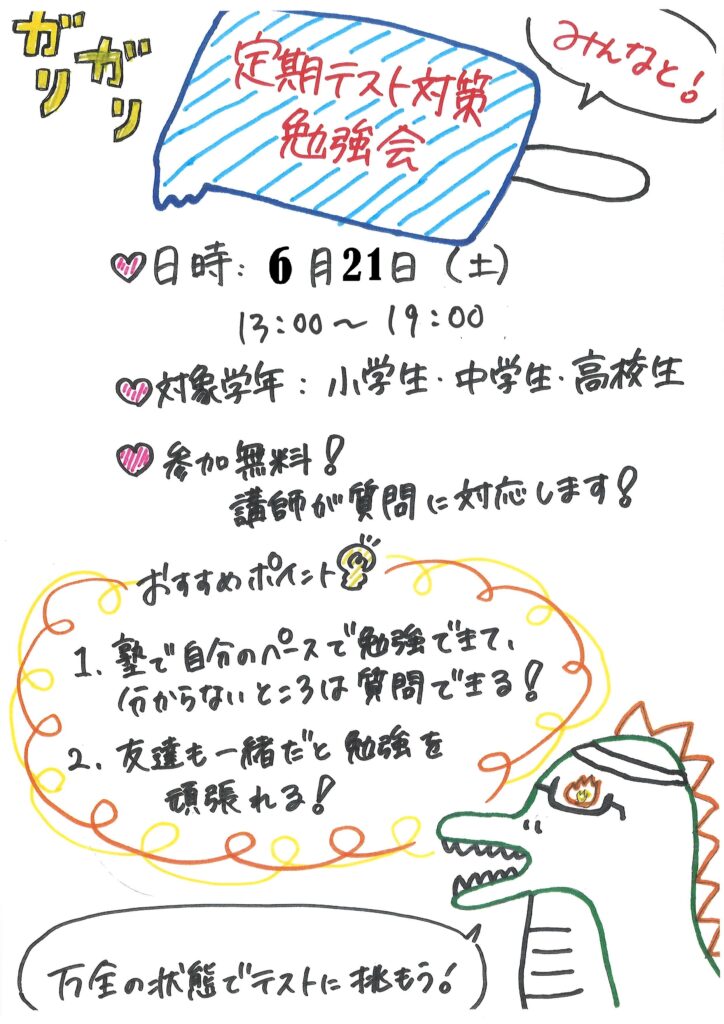 ガリガリ
みんなと!
定期テスト対策
勉強会
日時: 6月21日(土)
13:00〜19:00
対象学年: 小学生・中学生・高校生
参加無料!
講師が質問に対応します!
おすすめポイント
1. 塾で自分のペースで勉強できて、
分からないところは質問できる!
2. 友達も一緒だと勉強を
頑張れる!
万全の状態でテストに挑もう!